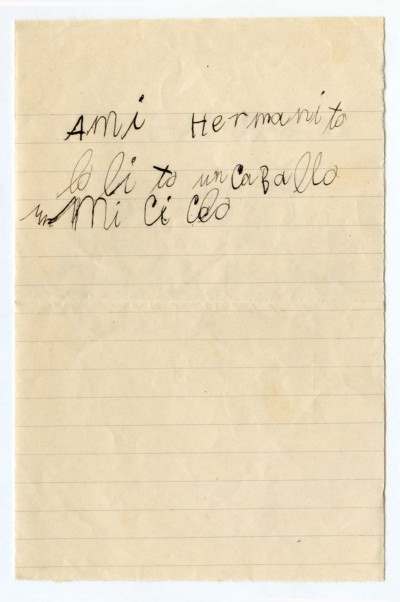 AMi Hermanito
lo li to un CaBallo
un Mi Ci Clo